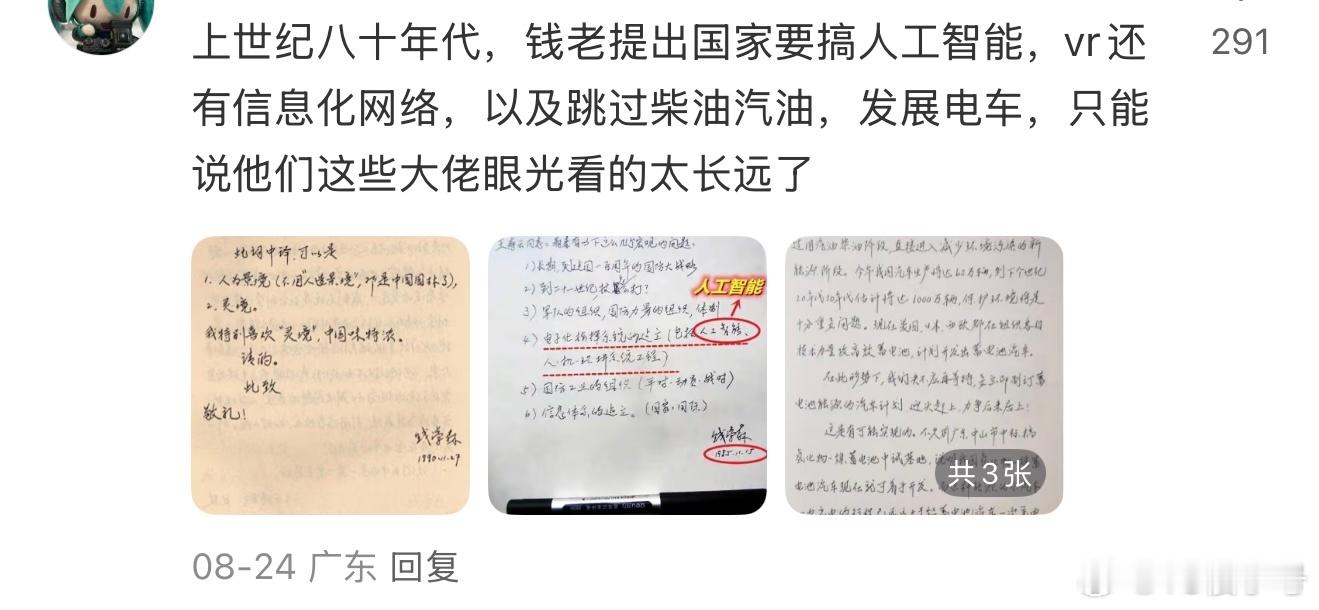 上世纪八十年代，钱老提出国家要搞人工智能，vr还
有信息化网络，以及跳过柴油汽油，发展电车，只能
说他们这些大佬眼光看的太长远了
291
此词中译，可以是
1. 人为景境（不用"人造景境"，那是中国园林了），
2. 灵境。
我特别喜欢"灵境"，中国味特浓。
请酌。
此致
敬礼！
钱学森
1990.11.27
下这么几个宏观的问题。
1）长期，到建国一百周年的国防大战略
2）到二十一世纪，仗怎么打？
3）军队的组织，国防力量的组织，体制
4）电子化指挥系统的建立（包括人工智能、
人·机·环境系统工程）
5）国防工业的组织（平时·动员·战时）
6）信息体系的建立。（国家·国防）
钱学森
1985.11.15
人工智能
用汽油柴油阶段，直接进入减少环境污染的新
能源阶段。今年我国汽车生产将达
10年20年代估计将达1000万辆，保护环境将是
十分重要问题。现在美国、日本、西欧都在组织各自
技术力量攻高效蓄电池，计划开发出蓄电池汽车。
在此形势下，我们决不应再等待，要立即制订蓄
电池能源的汽车计划，迎头赶上，力争后来居上！
这是有可能实现的。不久前广东中山市中标，搞
氢化物-镍蓄电池中试基地，
电池汽车现在就可着手开发。
共3张
08-24 广东 回复